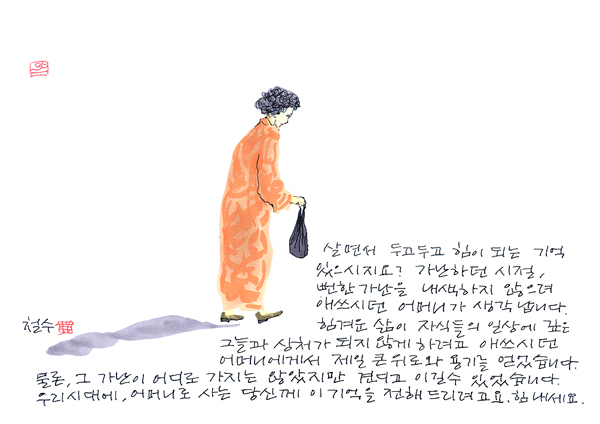 살면서 두고두고 힘이 되는 기억
있으시지요? 가난하던 시절,
뻔한 가난을 내색하지 않으려
애쓰시던 어머니가 생각납니다.
힘겨운 삶이 자식들의 일상에 깊은
그늘과 상처가 되지 않게 하려고 애쓰시던
어머니에게서 제일 큰 위로와 용기를 얻었습니다.
물론, 그 가난이 어디로 가지는 않았지만 견디고 이길 수 있었습니다.
우리시대에, 어머니로 사는 당신께 이 기억을 전해 드리려고요. 힘내세요.
철수